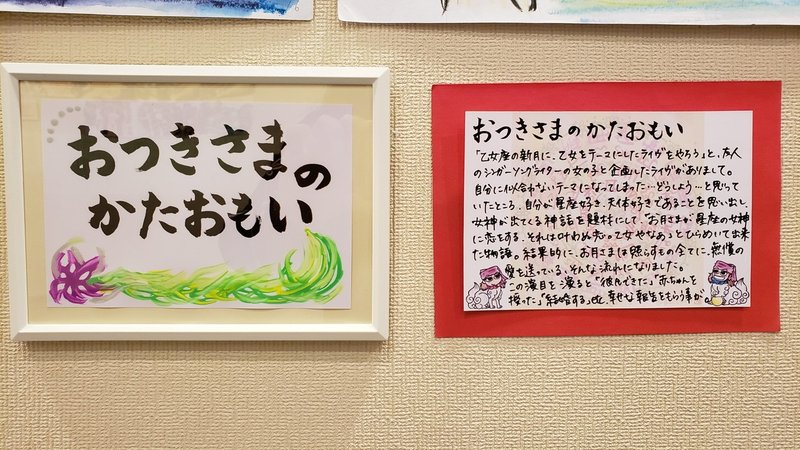 おつきさまの
かたおもい
おつきさまのかたおもい
「乙女座の新月に、乙女をテーマにしたライヴをやろう」と、友人
のシンガーソングライターの女の子と企画したライヴがありまして。
自分に似合わないテーマになってしまった…どうしよう…と思って
いたところ、自分が星座好き、天体好きであることを思い出し、
女神が出てくる神話を題材にして、"お月さまが星座の女神
に恋をする。それは叶わぬ恋の乙女やなぁ"とひらめいて出来
た物語。結果的に、お月さまは照らすもの全てに、無償の
愛を送っている、そんな流れになりました。
この演目を演ると"彼氏できた""赤ちゃんを
授った""結婚する"etc. 幸せな報告をもらう事が